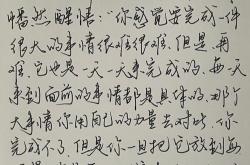 幡然醒悟：你感觉要完成一件
很大的事情很难很难，但是再
难，它也是一天一天来完成的，每一天
来到面前的事情都是具体的，那个
大事情你用自己的力量去对比，你
完成不了，但是你一旦把它放到每